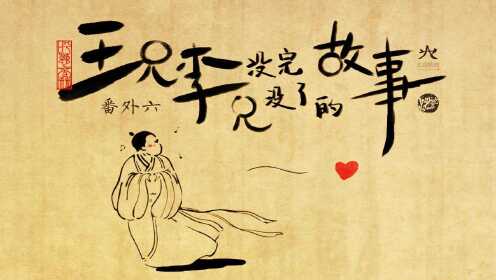 王兄李兄没完没了的故事
番外六